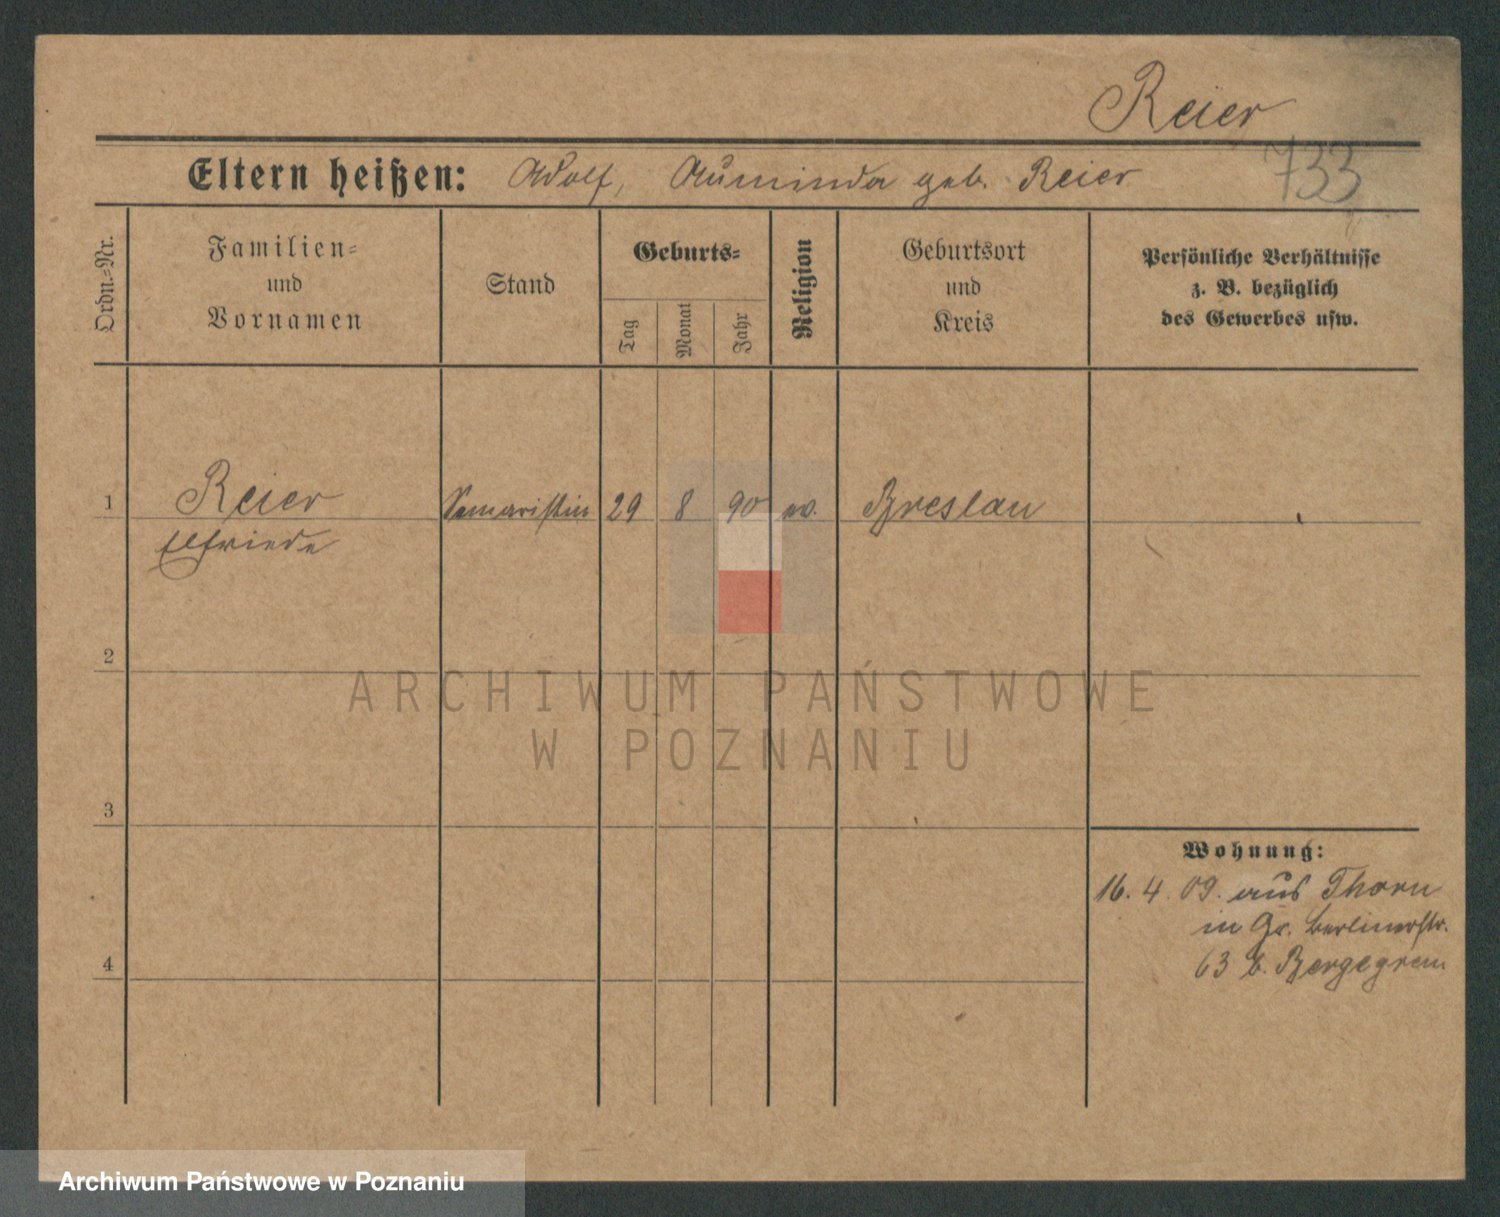 Reier
733
Eltern heißen: Adolf, geb. Reier
Ordn.-Nr.
Familien- und Vornamen
Stand
Geburts-
Tag
Monat
Jahr
Religion
Geburtsort und Kreis
Persönliche Verhältnisse
z. B. bezüglich
des Gewerbes usw.
1 Reier 29 8 90 ev. Breslau
Elfriede
2
3
4
Wohnung:
16. 4. 09. aus Thorn
in Gr. Berlinerstr.
63 b.
ARCHIWUM PAŃSTWOWE
W POZNANIU
Archiwum Państwowe w Poznaniu